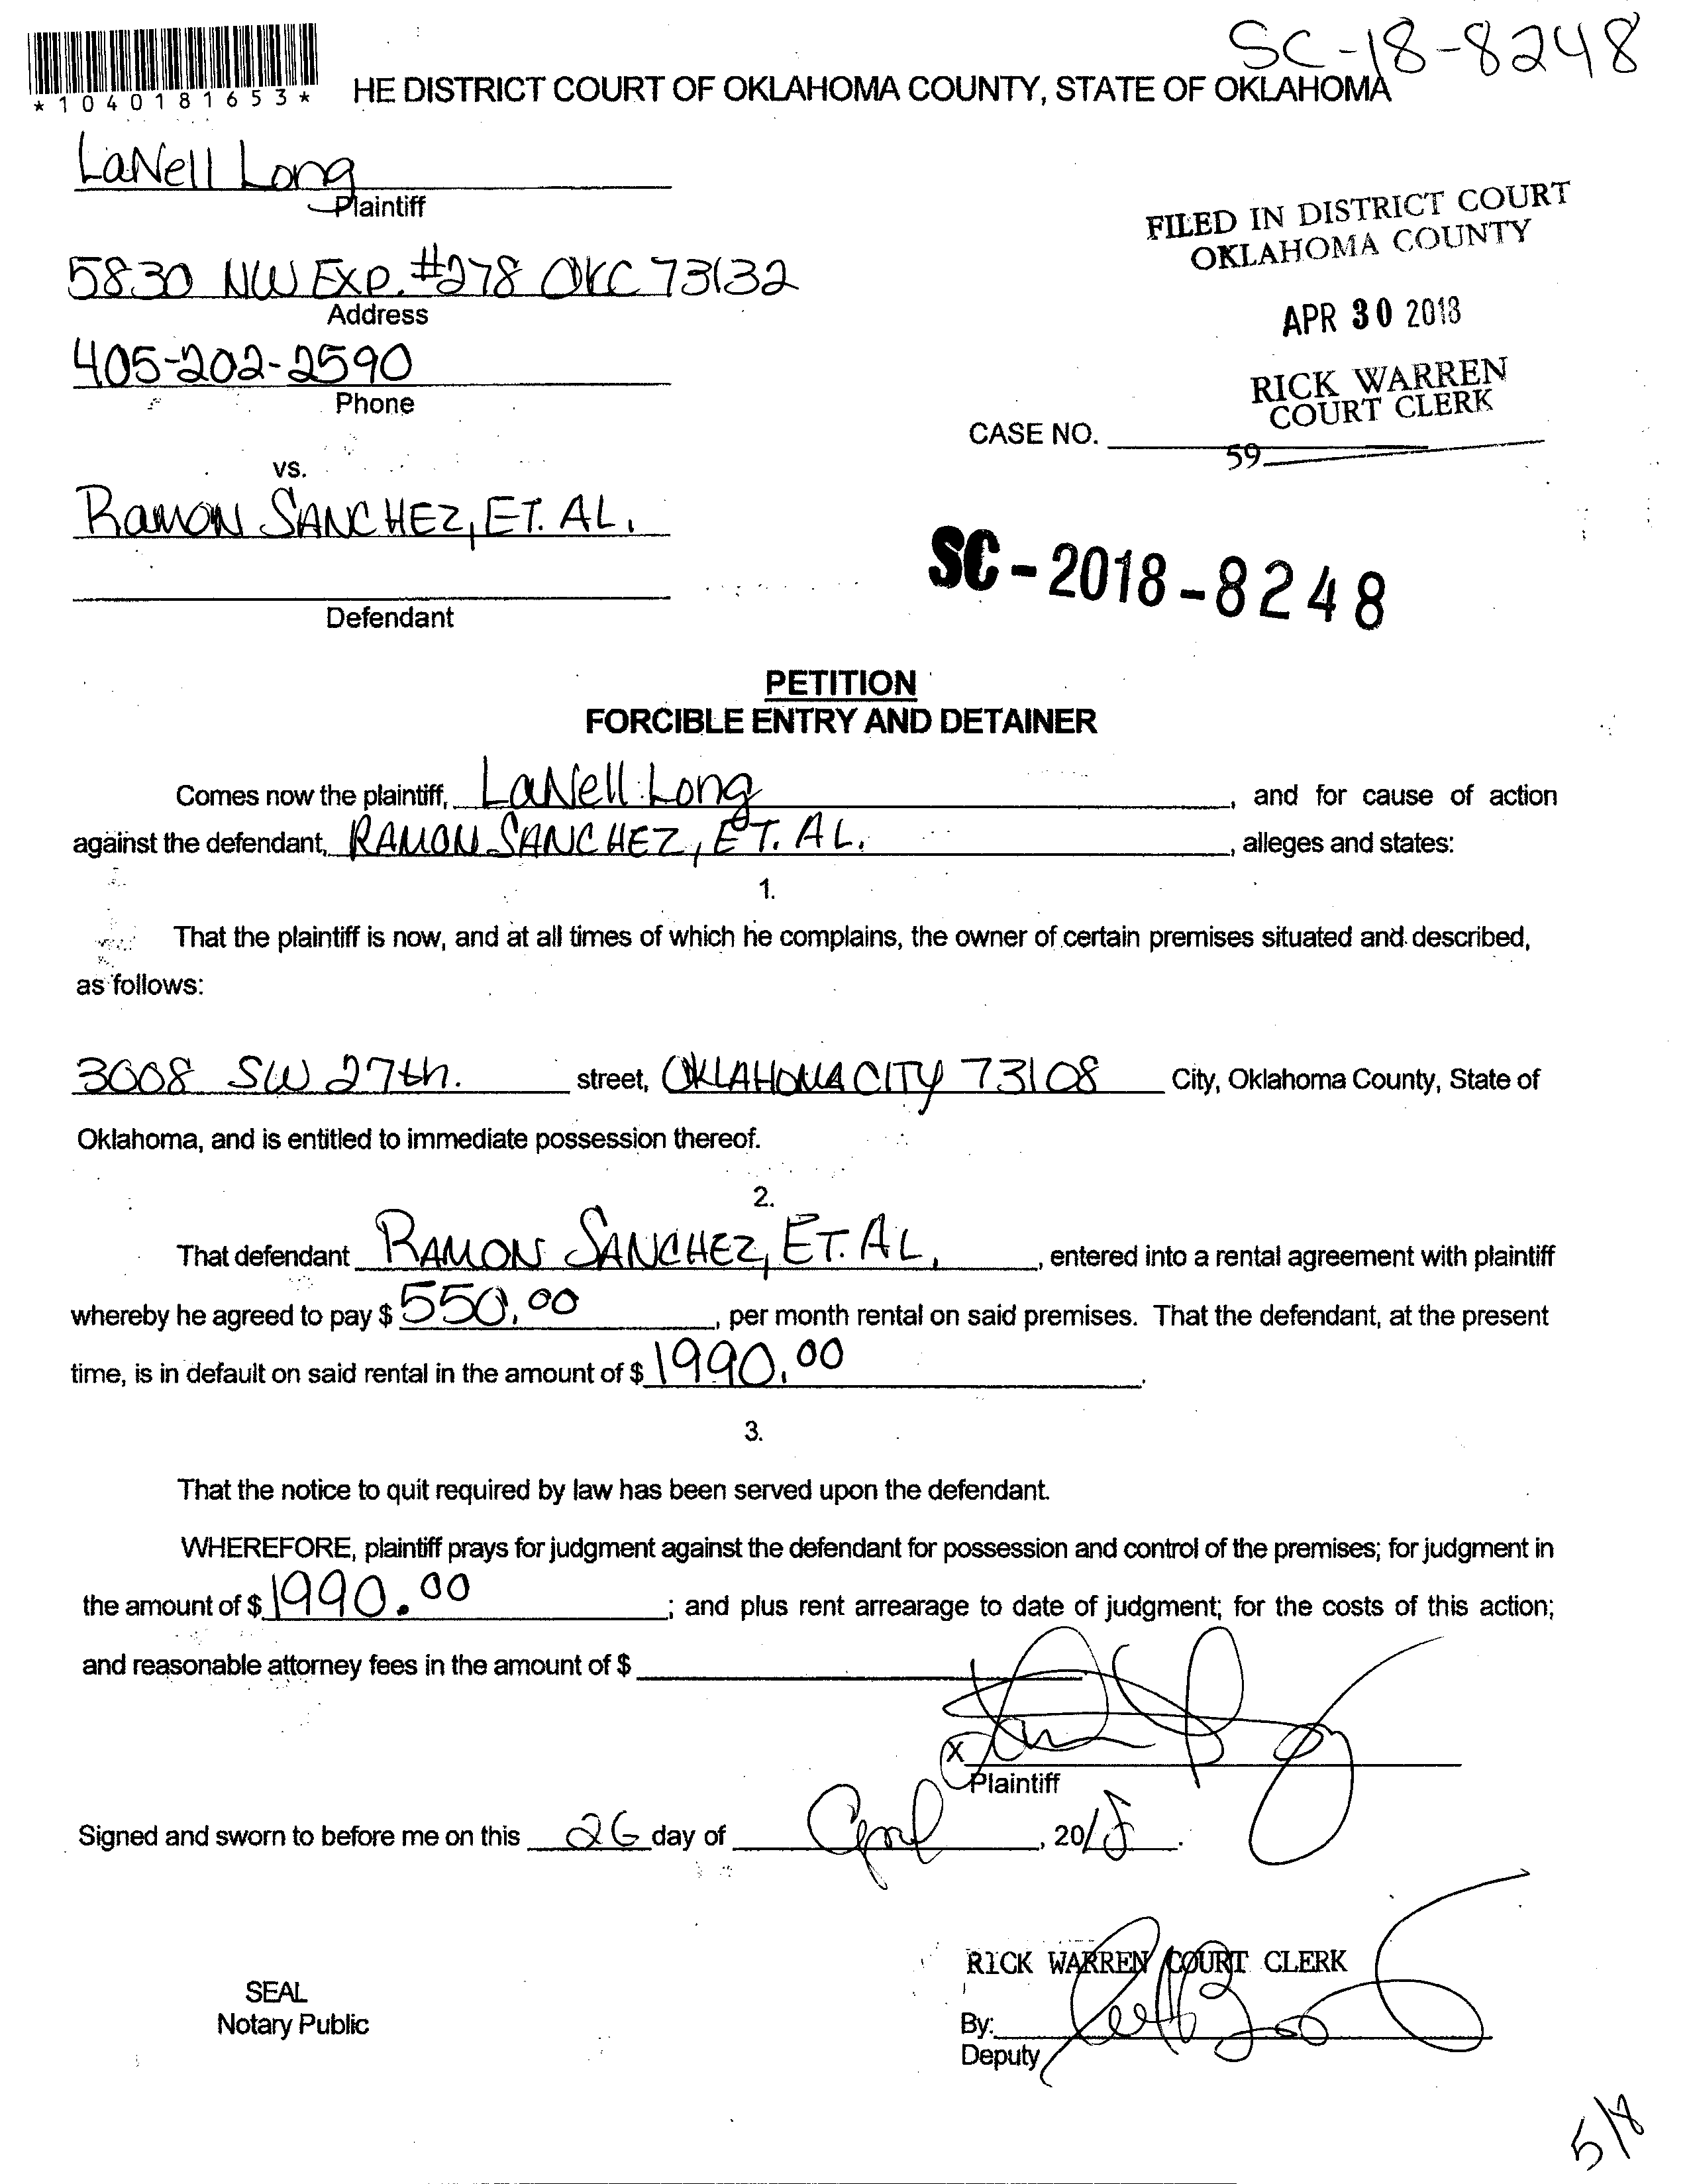 SC-18-8248
*1040181653*
HE DISTRICT COURT OF OKLAHOMA COUNTY, STATE OF OKLAHOMA
LaNell Long
Plaintiff
5830 NW Exp. #278 OKC 73132
Address
405-202-2590
Phone
FILED IN DISTRICT COURT
OKLAHOMA COUNTY
APR 30 2018
RICK WARREN
COURT CLERK
CASE NO.
59
vs.
RAMON SANCHEZ, ET. AL.
Defendant
SC-2018-8248
PETITION
FORCIBLE ENTRY AND DETAINER
Comes now the plaintiff, LaNell Long, and for cause of action
against the defendant, RAMON SANCHEZ, ET. AL., alleges and states:
1.
That the plaintiff is now, and at all times of which he complains, the owner of certain premises situated and described,
as follows:
3008 SW 27th. street, OKLAHOMA CITY 73108 City, Oklahoma County, State of
Oklahoma, and is entitled to immediate possession thereof.
2.
That defendant RAMON SANCHEZ, ET. AL., entered into a rental agreement with plaintiff
whereby he agreed to pay $ 550.00, per month rental on said premises. That the defendant, at the present
time, is in default on said rental in the amount of $ 1990.00.
3.
That the notice to quit required by law has been served upon the defendant.
WHEREFORE, plaintiff prays for judgment against the defendant for possession and control of the premises; for judgment in
the amount of $ 1990.00; and plus rent arrearage to date of judgment; for the costs of this action;
and reasonable attorney fees in the amount of $
X
Plaintiff
Signed and sworn to before me on this 26 day of April, 2018.
RICK WARREN COURT CLERK
SEAL
Notary Public
By:
Deputy
5/8